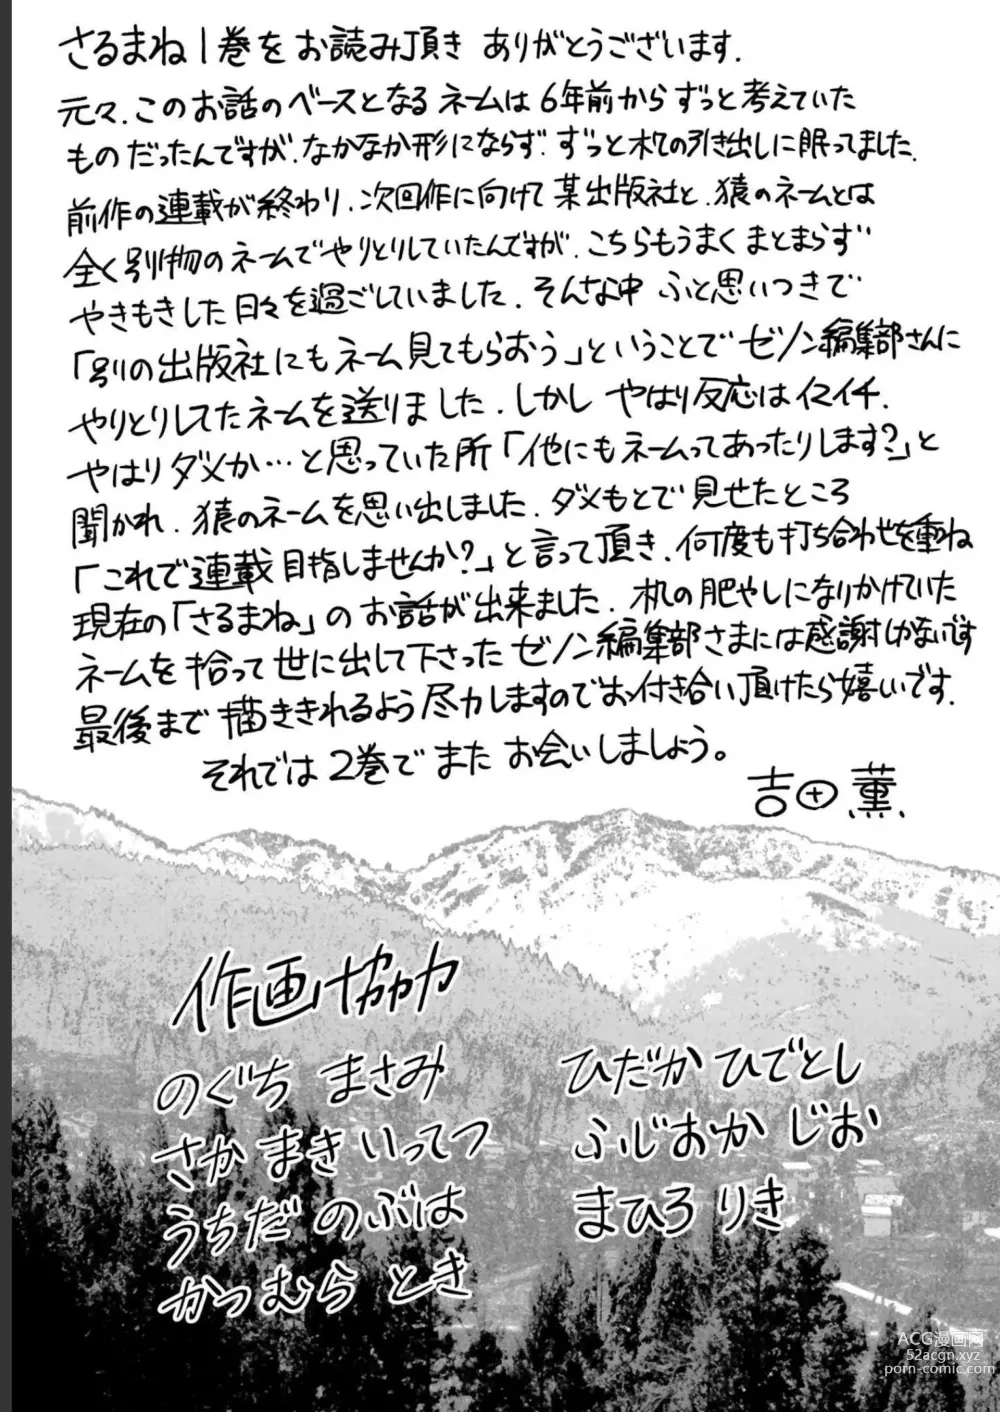 さるまね1巻をお読み頂き ありがとうございます.
元々、このお話のベースとなるネームは6年前からずっと考えていた
ものだったんですが、なかなか形にならず、ずっと机の引き出しに眠ってました.
前作の連載が終わり、次回作に向けて某出版社と、猿のネームとは
全く別物のネームでやりとりしていたんですが、こちらもうまくまとまらず
やきもきした日々を過ごしていました. そんな中 ふと思いつきで
「別の出版社にもネーム見てもらおう」ということでゼノン編集部さんに
やりとりしてたネームを送りました. しかし やはり反応はイマイチ.
やはりダメか…と思っていた所「他にもネームってあったりします?」と
聞かれ、猿のネームを思い出しました. ダメもとで見せたところ
「これで連載目指しませんか?」と言って頂き、何度も打ち合わせを重ね
現在の「さるまね」のお話が出来ました. 机の肥やしになりかけていた
ネームを拾って世に出して下さったゼノン編集部さまには感謝しかないです
最後まで描ききれるよう尽力しますのでお付き合い頂けたら嬉しいです.
それでは2巻でまたお会いしましょう。
吉田薫.
作画協力
のぐち まさみ
さかまき いってつ
うちだ のぶは
かつむら とき
ひだか ひでとし
ふじおか じお
まひろ りき
ACG漫画网
52acgn.xyz
porn-comic.com